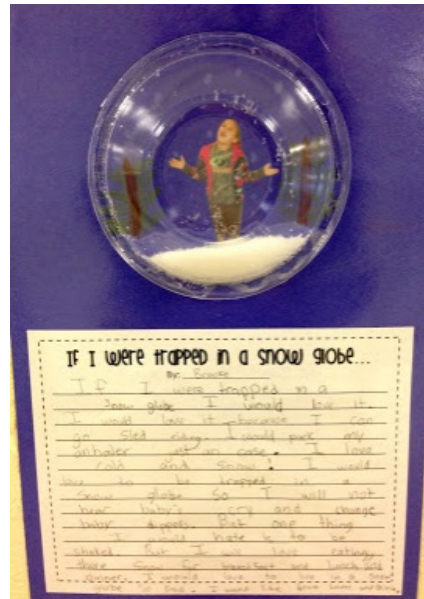 IF I WERE TRAPPED IN A SNOW GLOBE...
By: Brooke
If I were trapped in a
snow globe I would love it.
I would love it because I can
go sled riding. I would pack my
anhaler just an case. I love
cold and snow! I would
love to be trapped in a
snow globe so I will not
hear baby's cry and change
baby dippers. But one thing
I would hate is to be
shaked. But I will love eating
there snow for breakfast and lunch and
dinner. I would love to live in a snow
globe so bad. I would like